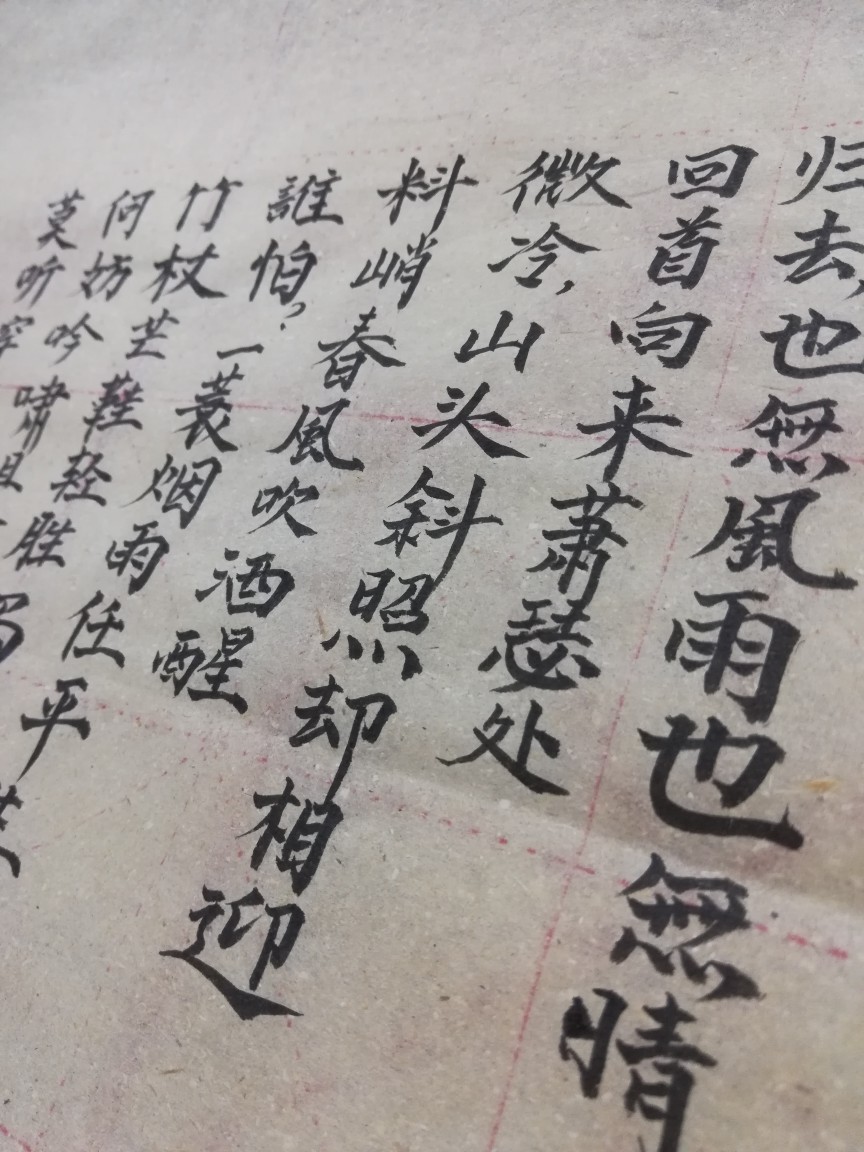 莫听穿
何妨吟啸且
竹杖芒鞋轻胜
誰怕?一蓑烟雨任平
料峭春風吹酒醒
微冷,山头斜照却相迎
回首向来萧瑟处
归去,也無風雨也無晴